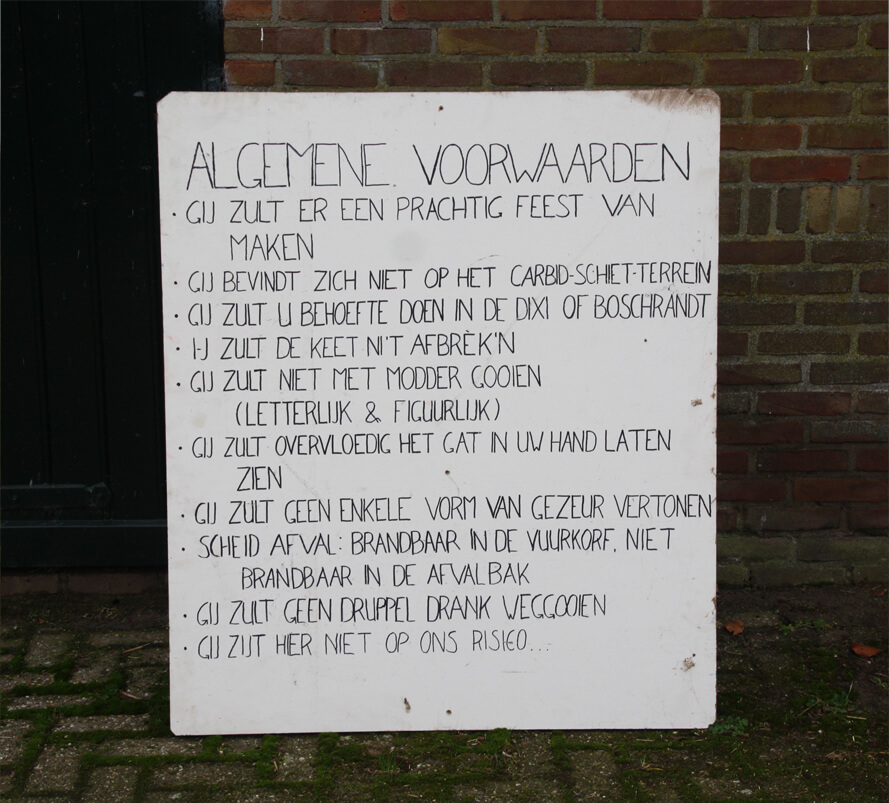 ALGEMENE. VOORWAARDEN
· GIJ ZULT ER EEN PRACHTIG FEEST VAN
MAKEN
· GIJ BEVINDT ZICH NIET OP HET CARBID-SCHIET-TERREIN
· GIJ ZULT U BEHOEFTE DOEN IN DE DIXI OF BOSCHRANDT
· I-J ZULT DE KEET NI'T AFBRÈK'N
· GIJ ZULT NIET MET MODDER GOOIEN
(LETTERLIJK & FIGUURLIJK)
· GIJ ZULT OVERVLOEDIG HET GAT IN UW HAND LATEN
ZIEN
· GIJ ZULT GEEN ENKELE VORM VAN GEZEUR VERTONEN
· SCHEID AFVAL: BRANDBAAR IN DE VUURKORF, NIET
BRANDBAAR IN DE AFVALBAK
· GIJ ZULT GEEN DRUPPEL DRANK WEGGOOIEN
· GIJ ZIJT HER NIET OP ONS RISICO...